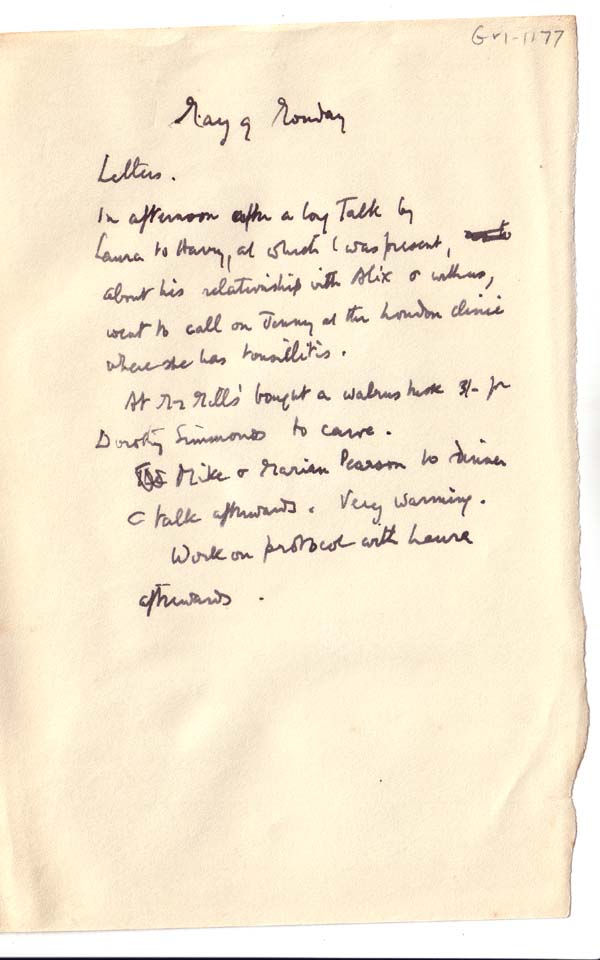 Gr1-1177
May 9 Monday
Letters.
In afternoon after a long talk by
Laura to Harry, at which I was present,
about his relationship with Alix & with us,
went to call on Jenny at the London clinic
where she has tonsillitis.
At Mills' bought a walrus tusk 3/- for
Dorothy Simmonds to carve.
Mike & Marian Pearson to dinner
talk afterwards. Very warming.
Work on protocol with Laura
afterwards.